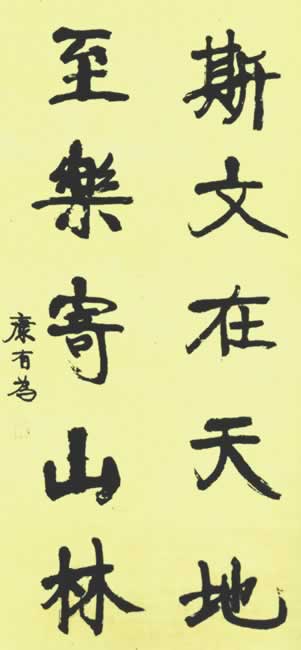 斯文在天地
至樂寄山林
康有為